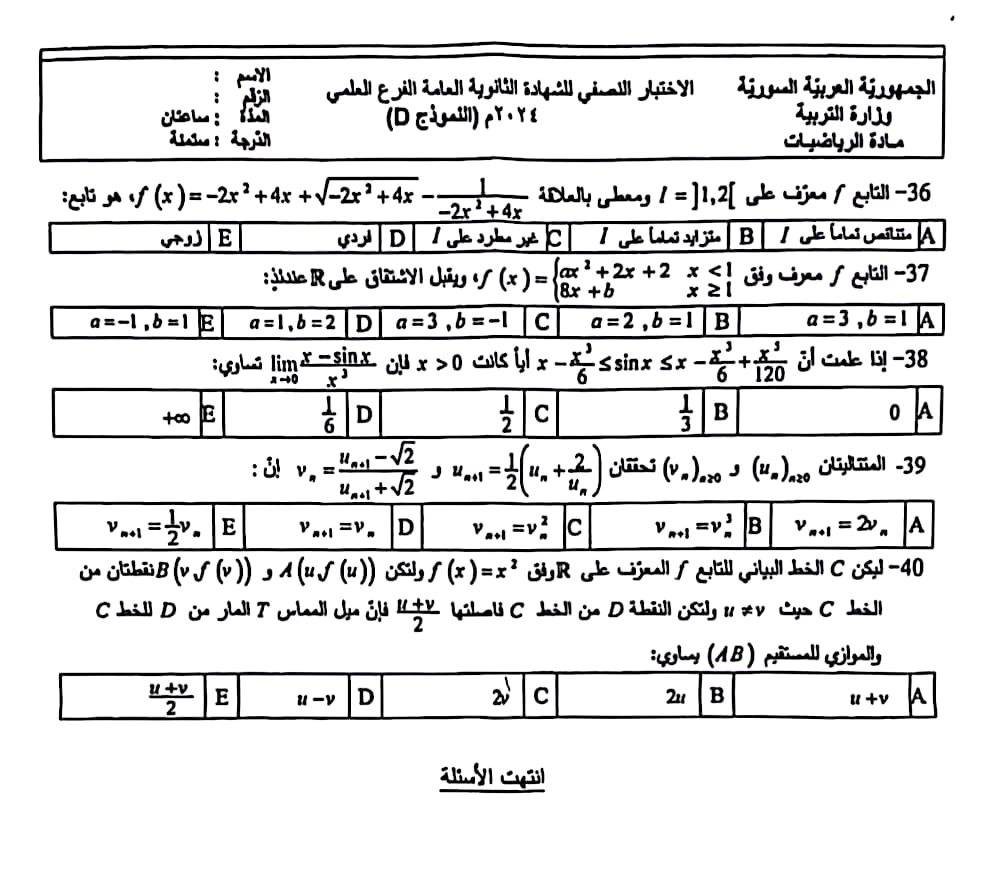 الجمهوريّة العربيّة السوريّة
وزارة التربية
مادة الرياضيات
الاختبار النصفي للشهادة الثانوية العامة الفرع العلمي
٢٠٢٤م (النموذج D)
الاسم :
الرقم :
المدة : ساعتان
الدرجة : ستمئة
36- التابع f معرّف على I = ]1,2[ ومعطى بالعلاقة f(x) = -2x² + 4x + √(-2x² + 4x) - 1/(-2x² + 4x)، هو تابع:
A متناقص تماماً على I B متزايد تماماً على I C غير مطرد على I D فردي E زوجي
37- التابع f معرف وفق f(x) = {ax² + 2x + 2 x < 1 ; 8x + b x ≥ 1، ويقبل الاشتقاق على ℝ عندئذٍ:
A a = 3 , b = 1 B a = 2 , b = 1 C a = 3 , b = -1 D a = 1 , b = 2 E a = -1 , b = 1
38- إذا علمت أنّ x - x³/6 ≤ sin x ≤ x - x³/6 + x⁵/120 أياً كانت x > 0 فإن lim x→0 (x - sin x)/x³ تساوي:
A 0 B 1/3 C 1/2 D 1/6 E +∞
39- المتتاليتان (uₙ)ₙ≥₀ و (vₙ)ₙ≥₀ تحققان uₙ₊₁ = 1/2(uₙ + 2/uₙ) و vₙ = (uₙ₊₁ - √2)/(uₙ₊₁ + √2) إنّ :
A vₙ₊₁ = 2vₙ B vₙ₊₁ = vₙ³ C vₙ₊₁ = vₙ² D vₙ₊₁ = vₙ E vₙ₊₁ = 1/2 vₙ
40- ليكن C الخط البياني للتابع f المعرّف على ℝ وفق f(x) = x² ولتكن A(u, f(u)) و B(v, f(v)) نقطتان من
الخط C حيث u ≠ v ولتكن النقطة D من الخط C فاصلتها (u+v)/2 فإنّ ميل المماس T المار من D للخط C
والموازي للمستقيم (AB) يساوي:
A u + v B 2u C 2v D u - v E (u+v)/2
انتهت الأسئلة